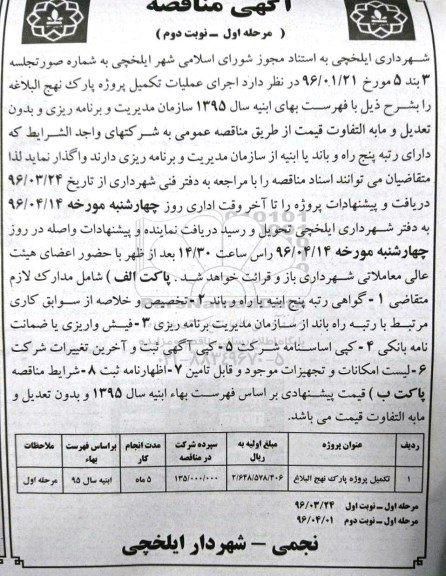 آگهی مناقصه
( مرحله اول ــ نوبت دوم )
شهرداری ایلخچی به استناد مجوز شورای اسلامی شهر ایلخچی به شماره صورتجلسه
۳ بند ۵ مورخ ۹۶/۰۱/۲۱ در نظر دارد اجرای عملیات تکمیل پروژه پارک نهج البلاغه
را بشرح ذیل با فهرست بهای ابنیه سال ۱۳۹۵ سازمان مدیریت و برنامه ریزی و بدون
تعدیل و مابه التفاوت قیمت از طریق مناقصه عمومی به شرکتهای واجد الشرایط که
دارای رتبه پنج راه و باند یا ابنیه از سازمان مدیریت و برنامه ریزی دارند واگذار نماید لذا
متقاضیان می توانند اسناد مناقصه را با مراجعه به دفتر فنی شهرداری از تاریخ ۹۶/۰۳/۲۴
دریافت و پیشنهادات پروژه را تا آخر وقت اداری روز چهارشنبه مورخه ۹۶/۰۴/۱۴
به دفتر شهرداری ایلخچی تحویل و رسید دریافت نماینده و پیشنهادات واصله در روز
چهارشنبه مورخه ۹۶/۰۴/۱۴ راس ساعت ۱۴/۳۰ بعد از ظهر با حضور اعضای هیئت
عالی معاملاتی شهرداری باز و قرائت خواهد شد . پاکت الف ) شامل مدارک لازم
متقاضی ۱ - گواهی رتبه پنج ابنیه یا راه و باند ۲ - تخصیص و خلاصه از سوابق کاری
مرتبط با رتبه راه باند از سازمان مدیریت برنامه ریزی ۳ - فیش واریزی یا ضمانت
نامه بانکی ۴ - کپی اساسنامه شرکت ۵ - کپی آگهی ثبت و آخرین تغییرات شرکت
۶ - لیست امکانات و تجهیزات موجود و قابل تامین ۷ - اظهارنامه ثبت ۸ - شرایط مناقصه
پاکت ب ) قیمت پیشنهادی بر اساس فهرست بهاء ابنیه سال ۱۳۹۵ و بدون تعدیل و
مابه التفاوت قیمت می باشد.
ردیف عنوان پروژه مبلغ اولیه به ریال سپرده شرکت در مناقصه مدت انجام کار براساس فهرست بهاء ملاحظات
۱ تکمیل پروژه پارک نهج البلاغ ۲/۶۴۸/۵۷۸/۴۰۶ ۱۳۵/۰۰۰/۰۰۰ ۵ ماه ابنیه سال ۹۵ مرحله اول
مرحله اول ــ نوبت اول ۹۶/۰۳/۲۴
مرحله اول ــ نوبت دوم ۹۶/۰۴/۰۱
نجمی – شهردار ایلخچی